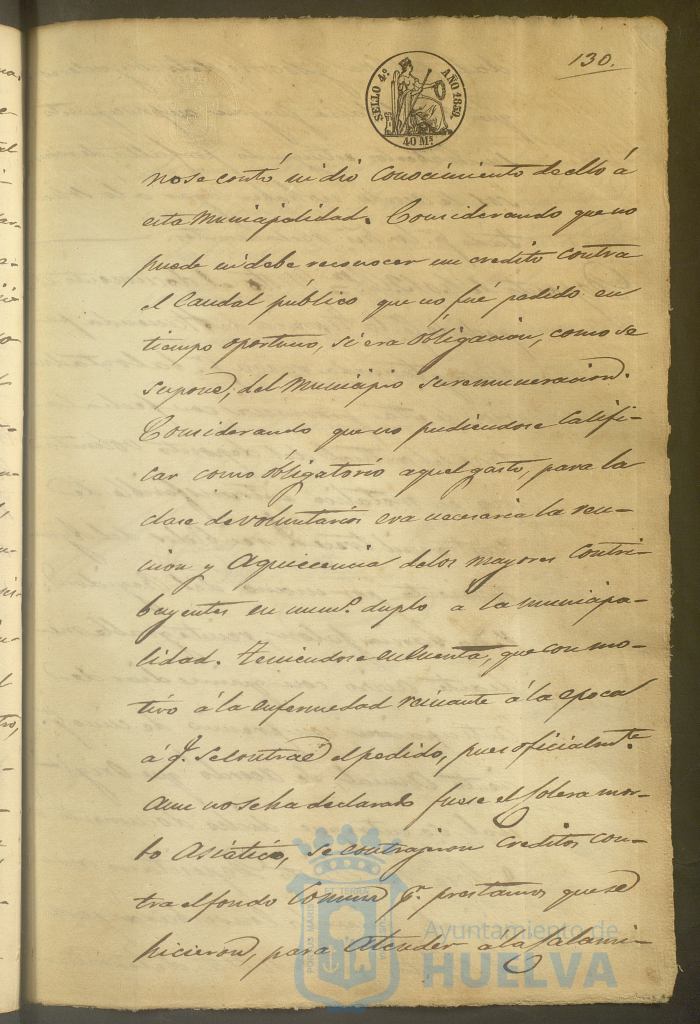 130.
SELLO 4º AÑO 1859.
40 Ms
no se contó ni dió conocimiento de ello á
esta Municipalidad. Considerando que no
puede ni debe reconocer un credito contra
el Caudal público que no fué pedido en
tiempo oportuno, si era obligacion, como se
supone, del Municipio su remuneracion.
Considerando que no pudiendose califi-
car como obligatorio aquel gasto, para la
clase de voluntarios era necesaria la reu-
nion y Aquiecencia de los mayores Contri-
buyentes en numº duplo a la municipa-
lidad. Teniendose en cuenta, que con mo-
tivo á la enfermedad reinante á la epoca
á q. se contrae el pedido, pues oficialmte
aun no se ha declarado fuese el Colera mor-
bo Asiatico, se contrageron creditos con-
tra el fondo Comun pr prestamos que se
hicieron, para Atender á la Calami-
Ayuntamiento de
HUELVA